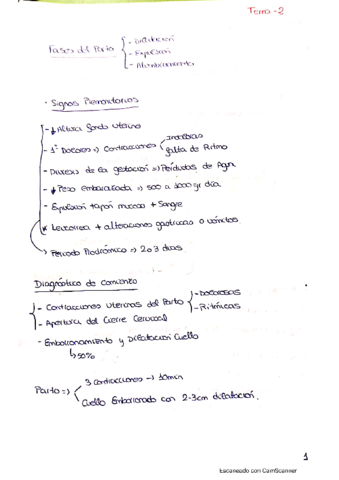 Tema - 2
Fases del Parto
- Dilatación
- Expulsión
- Alumbramiento
· Signos Premonitorios
- ↓ Altura fondo uterino
- 1º Dolores => Contracciones
Incoloras
falta de Ritmo
- de la gestación => Pérdidas de Agua
- ↓ Peso embarazada => 500 a 1000 gr día
- Expulsión tapón mucoso + Sangre
Leucorrea + alteraciones gástricas o vómitos
↳ Periodo Prodrómico => 2 o 3 días
Diagnóstico de Comienzo
- Contracciones uterinas del Parto
- Dolorosas
- Rítmicas
- Apertura del Cierre Cervical
- Emborronamiento y Dilatación Cuello
↳ 50%
Parto =>
3 contracciones -> 10min
Cuello Emborronado con 2-3cm dilatación.
1
Escaneado con CamScanner